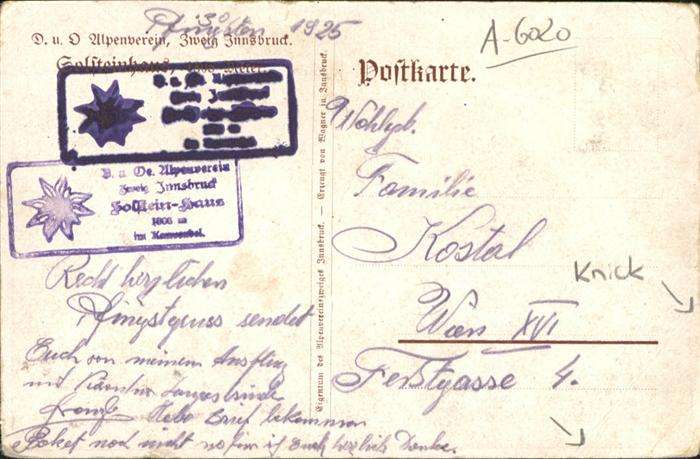 Pfingsten 1925
D. u. O Alpenverein, Zweig Innsbruck.
Solsteinhaus
D. u. Oe. Alpenverein
Zweig Innsbruck
Solstein-Haus
1806 m
im Karwendel.
Recht herzlichen
Pfingstgruss sendet
Euch von meinem Ausflug
mit
Franz Habe Brief bekommen
Paket noch nicht wofür ich Euch herzlich Danke.
Eigentum des Alpenvereinszweiges Innsbruck. — Erzeugt von Wagner in Innsbruck.
A-6020
Postkarte.
Wohlgeb.
Familie
Kostal
Wien XVI
Knick
Ferstgasse 4.